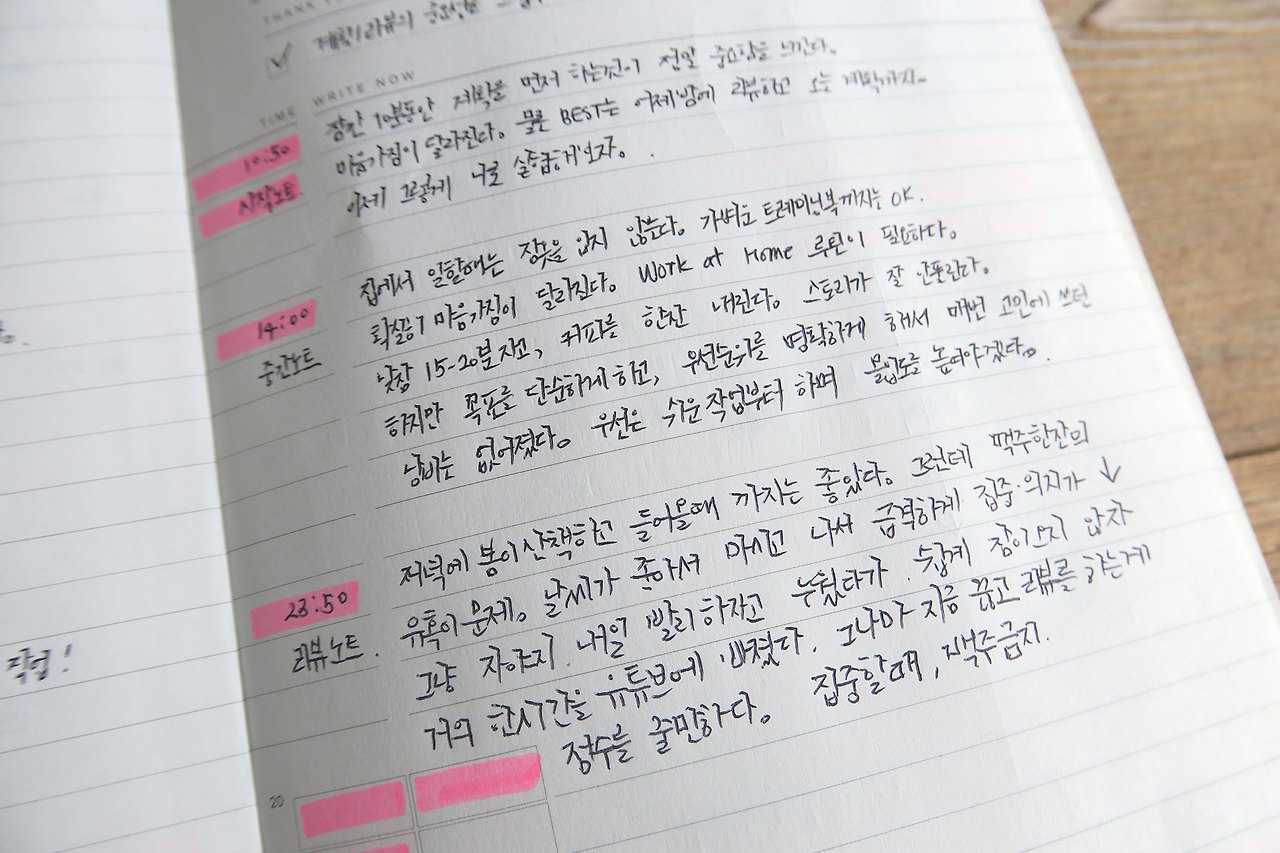 THANK
계획/리뷰의 중요성을
TIME WRITE NOW
10:50 잠깐 1분동안 계획을 먼저 하는것이 정말 중요함을 느낀다.
시작노트 마음가짐이 달라진다. 물론 BEST는 어제밤에 리뷰하고 오늘 계획까지.
이제 그렇게 나를 실증해보자.
집에서 일할때는 잠옷을 입지 않는다. 가벼운 트레이닝복까지는 OK.
14:00 확실히 마음가짐이 달라진다. Work at Home 루틴이 필요하다.
중간노트 낮잠 15-20분 자고, 커피를 한잔 내린다. 스토리가 잘 안풀린다.
하지만 목표를 단순하게하고, 우선순위를 명확하게 해서 매번 고민에 쓰던
낭비는 없어졌다. 우선은 쉬운작업부터 하며 몰입도를 높여야겠다.
저녁에 봄이산책하고 들어올때 까지는 좋았다. 그런데 맥주한잔의
23:50 유혹이 문제. 날씨가 좋아서 마시고 나서 급격하게 집중·의지가 ↓
리뷰노트. 그냥 자야지. 내일 빨리하자고 누웠다가. 쉽게 잠이오지 않자
직업!
거의 한시간을 유튜브에 빠졌다. 그나마 지금 끊고 리뷰를 하는게
점수를 줄만하다. 집중할때, 맥주금지.
20